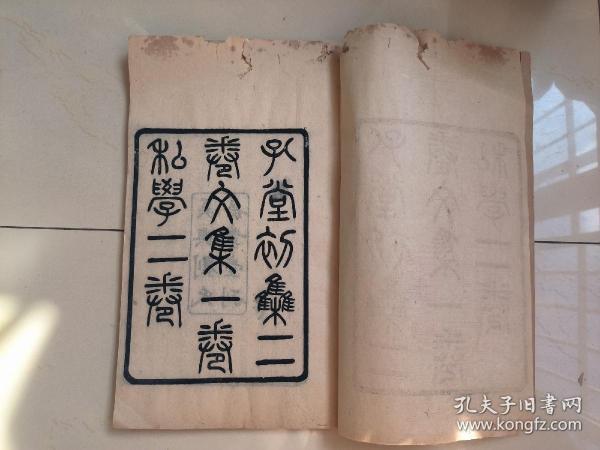 孔堂初集二
卷文集一卷
私學二卷
孔夫子旧书网
www.kongfz.com